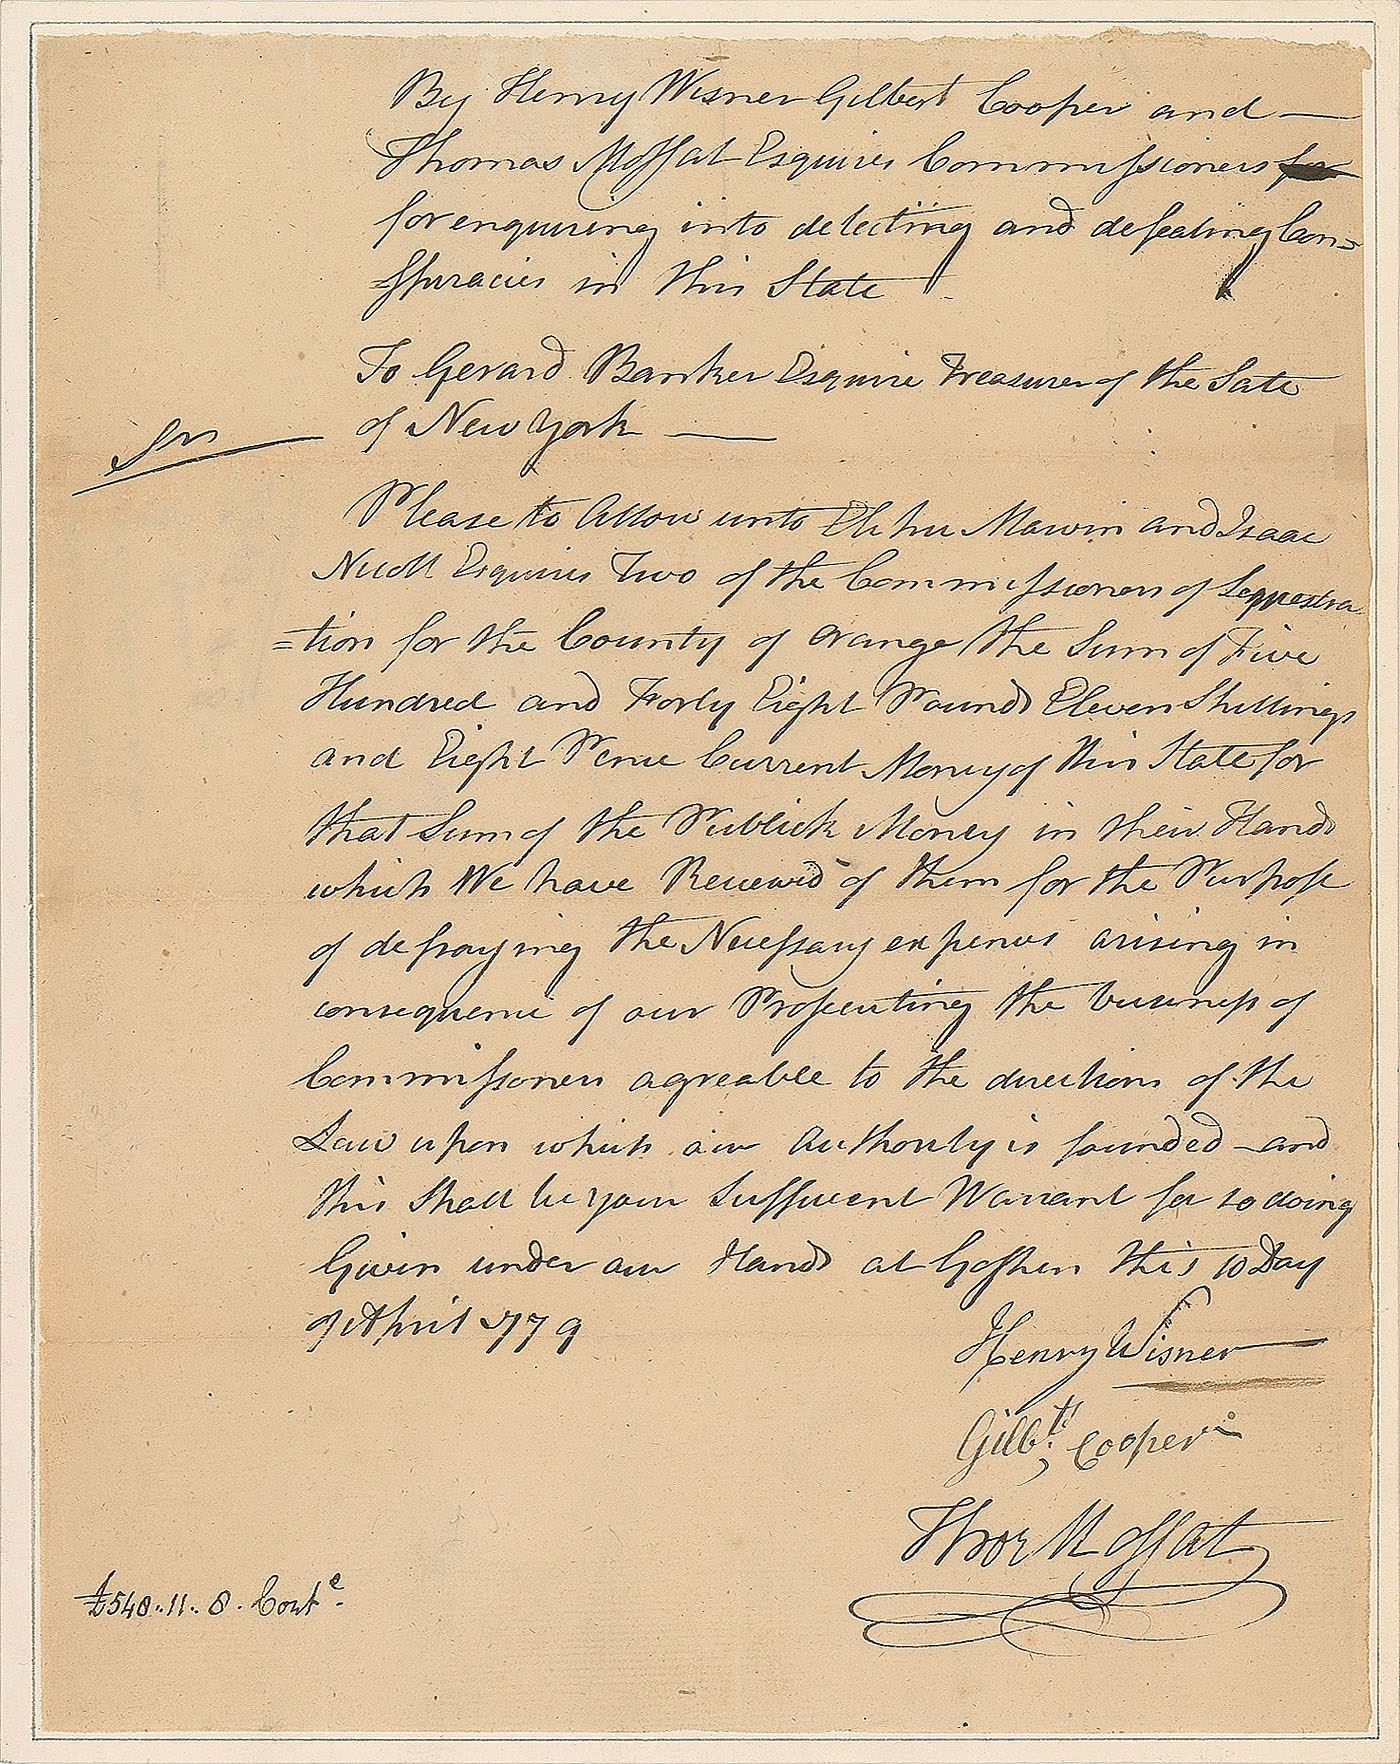 By Henry Wisner Gilbert Cooper and —
Thomas Moffat Esquires Commissioners for
for enquiring into detecting and defeating Con=
=spiracies in this State
To Gerard Banker Esquire Treasurer of the Sate
of New York —
Sr
Please to Allow unto Elihu Marvin and Isaac
Nicoll Esquires Two of the Commissioners of Sequestra
=tion for the County of Orange the Sum of Five
Hundred and Forty Eight Pounds Eleven Shillings
and Eight Pence Current Money of this State for
that Sum of the Publick Money in their Hands
which We have Received of them for the Purpose
of defraying the Necessary expences arising in
consequence of our Prosecuting the business of
Commissioners agreable to the directions of the
Law upon which our Authority is founded — and
this Shall be your Sufficient Warrant for so doing
Given under our Hands at Goshen this 10 Day
of April 1779
Henry Wisner
Gilbt. Cooper
Thos Moffat
£548..11..8. Conte.